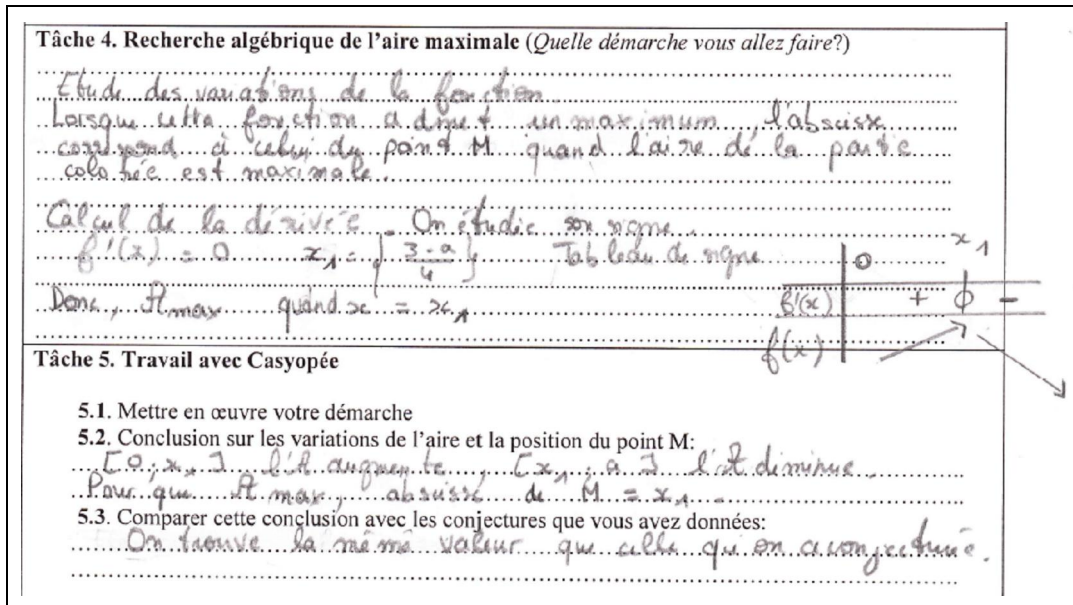 Tâche 4. Recherche algébrique de l'aire maximale (Quelle démarche vous allez faire?)
Etude des variations de la fonction
Lorsque cette fonction admet un maximum, l'abscisse
correspond à celui du point M quand l'aire de la partie
colorée est maximale.
Calcul de la dérivée. On étudie son signe.
f'(x) = 0 x₁ = { 3·a/4 } Tableau de signe
Donc, A max quand x = x₁
0 x₁
f'(x) + ϕ -
f(x)
Tâche 5. Travail avec Casyopée
5.1. Mettre en œuvre votre démarche
5.2. Conclusion sur les variations de l'aire et la position du point M:
[0; x₁] l'A augmente, [x₁; a] l'A diminue.
Pour que A max, abscisse de M = x₁.
5.3. Comparer cette conclusion avec les conjectures que vous avez données:
On trouve la même valeur que celle qu'on a conjecturée.